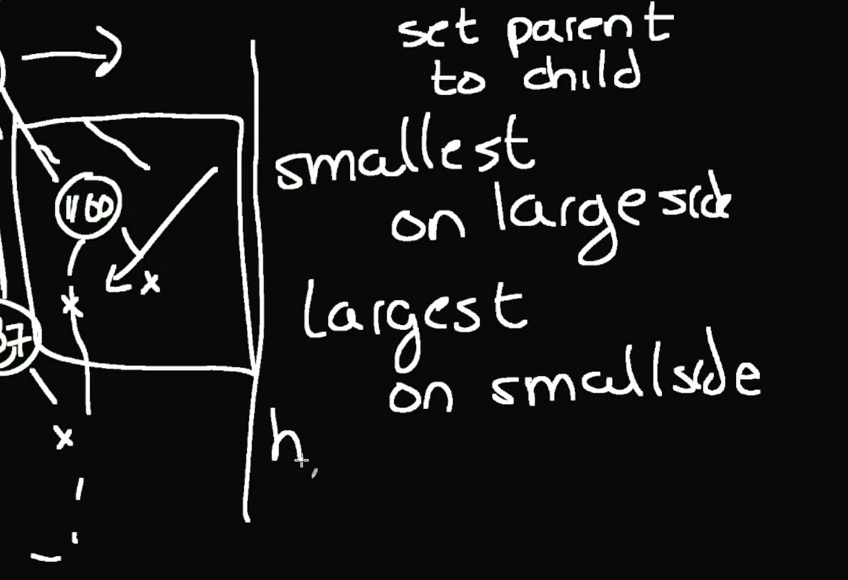 set parent
to child
smallest
on large side
largest
on small side
h
x
x
x